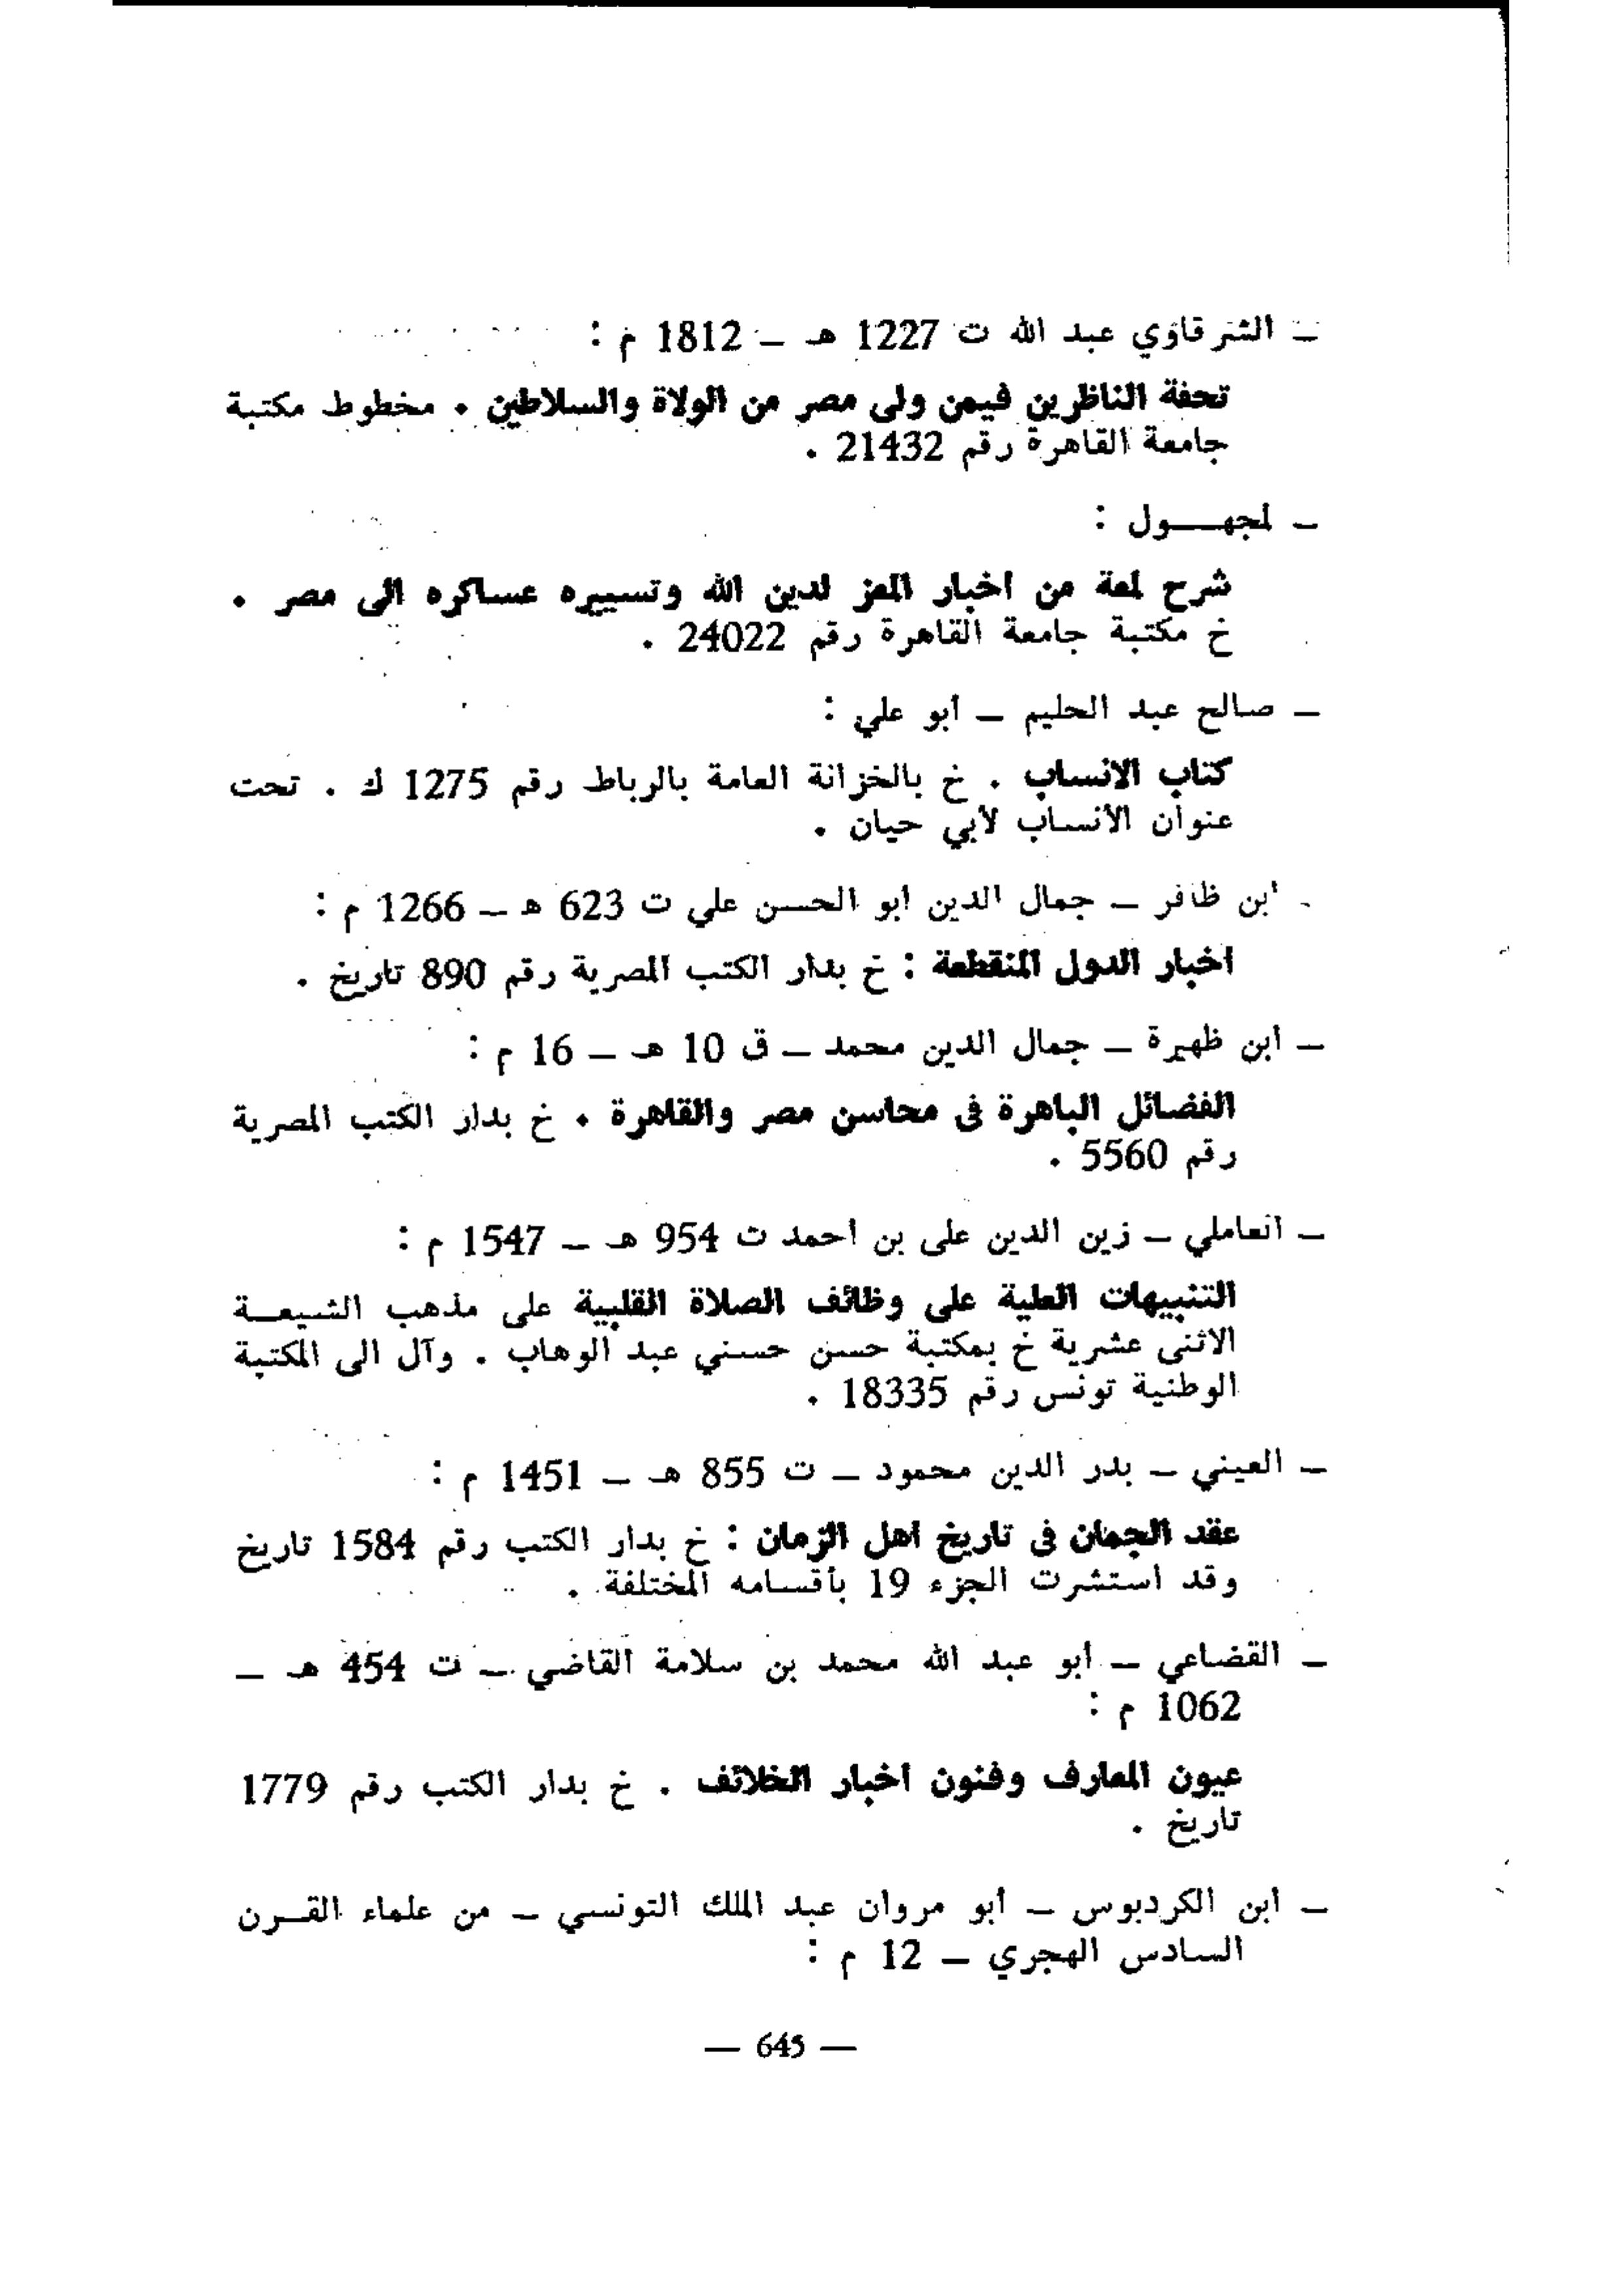 ــ الشرقاوي عبد الله ت 1227 هـ ــ 1812 م :
تحفة الناظرين فيمن ولى مصر من الولاة والسلاطين . مخطوط مكتبة
جامعة القاهرة رقم 21432 .
ــ لمجهـــــول :
شرح لمعة من اخبار المعز لدين الله وتسييره عساكره الى مصر .
خ مكتبة جامعة القاهرة رقم 24022 .
ــ صالح عبد الحليم ــ أبو علي :
كتاب الانساب . خ بالخزانة العامة بالرباط رقم 1275 ك . تحت
عنوان الأنساب لأبي حيان .
ـ ابن ظافر ــ جمال الدين ابو الحسن علي ت 623 هـ ــ 1266 م :
اخبار الدول المنقطعة : خ بدار الكتب المصرية رقم 890 تاريخ .
ــ ابن ظهيرة ــ جمال الدين محمد ــ ق 10 هـ ــ 16 م :
الفضائل الباهرة فى محاسن مصر والقاهرة . خ بدار الكتب المصرية
رقم 5560 .
ــ العاملي ــ زين الدين على بن احمد ت 954 هـ ــ 1547 م :
التنبيهات العلية على وظائف الصلاة القلبية على مذهب الشيعــة
الاثنى عشرية خ بمكتبة حسن حسني عبد الوهاب . وآل الى المكتبة
الوطنية تونس رقم 18335 .
ــ العيني ــ بدر الدين محمود ــ ت 855 هـ ــ 1451 م :
عقد الجمان فى تاريخ اهل الزمان : خ بدار الكتب رقم 1584 تاريخ
وقد استشرت الجزء 19 بأقسامه المختلفة .
ــ القضاعي ــ أبو عبد الله محمد بن سلامة القاضي ــ ت 454 هـ ــ
1062 م :
عيون المعارف وفنون اخبار الخلائف . خ بدار الكتب رقم 1779
تاريخ .
ــ ابن الكردبوس ــ أبو مروان عبد الملك التونسي ــ من علماء القــرن
السادس الهجري ــ 12 م :
— 645 —